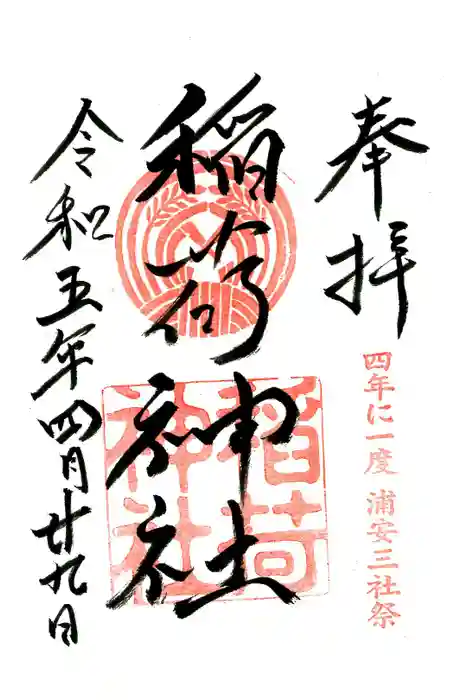 奉拝
四年に一度 浦安三社祭
稲荷神社
稲荷
神社
令和五年四月廿九日